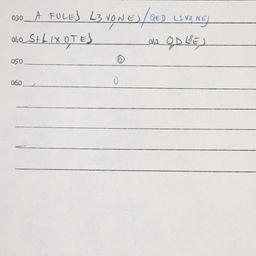 030 A FULES L3 VONES/QED LIVONES
040 S+LIXOTES 042 QDLES
050
060